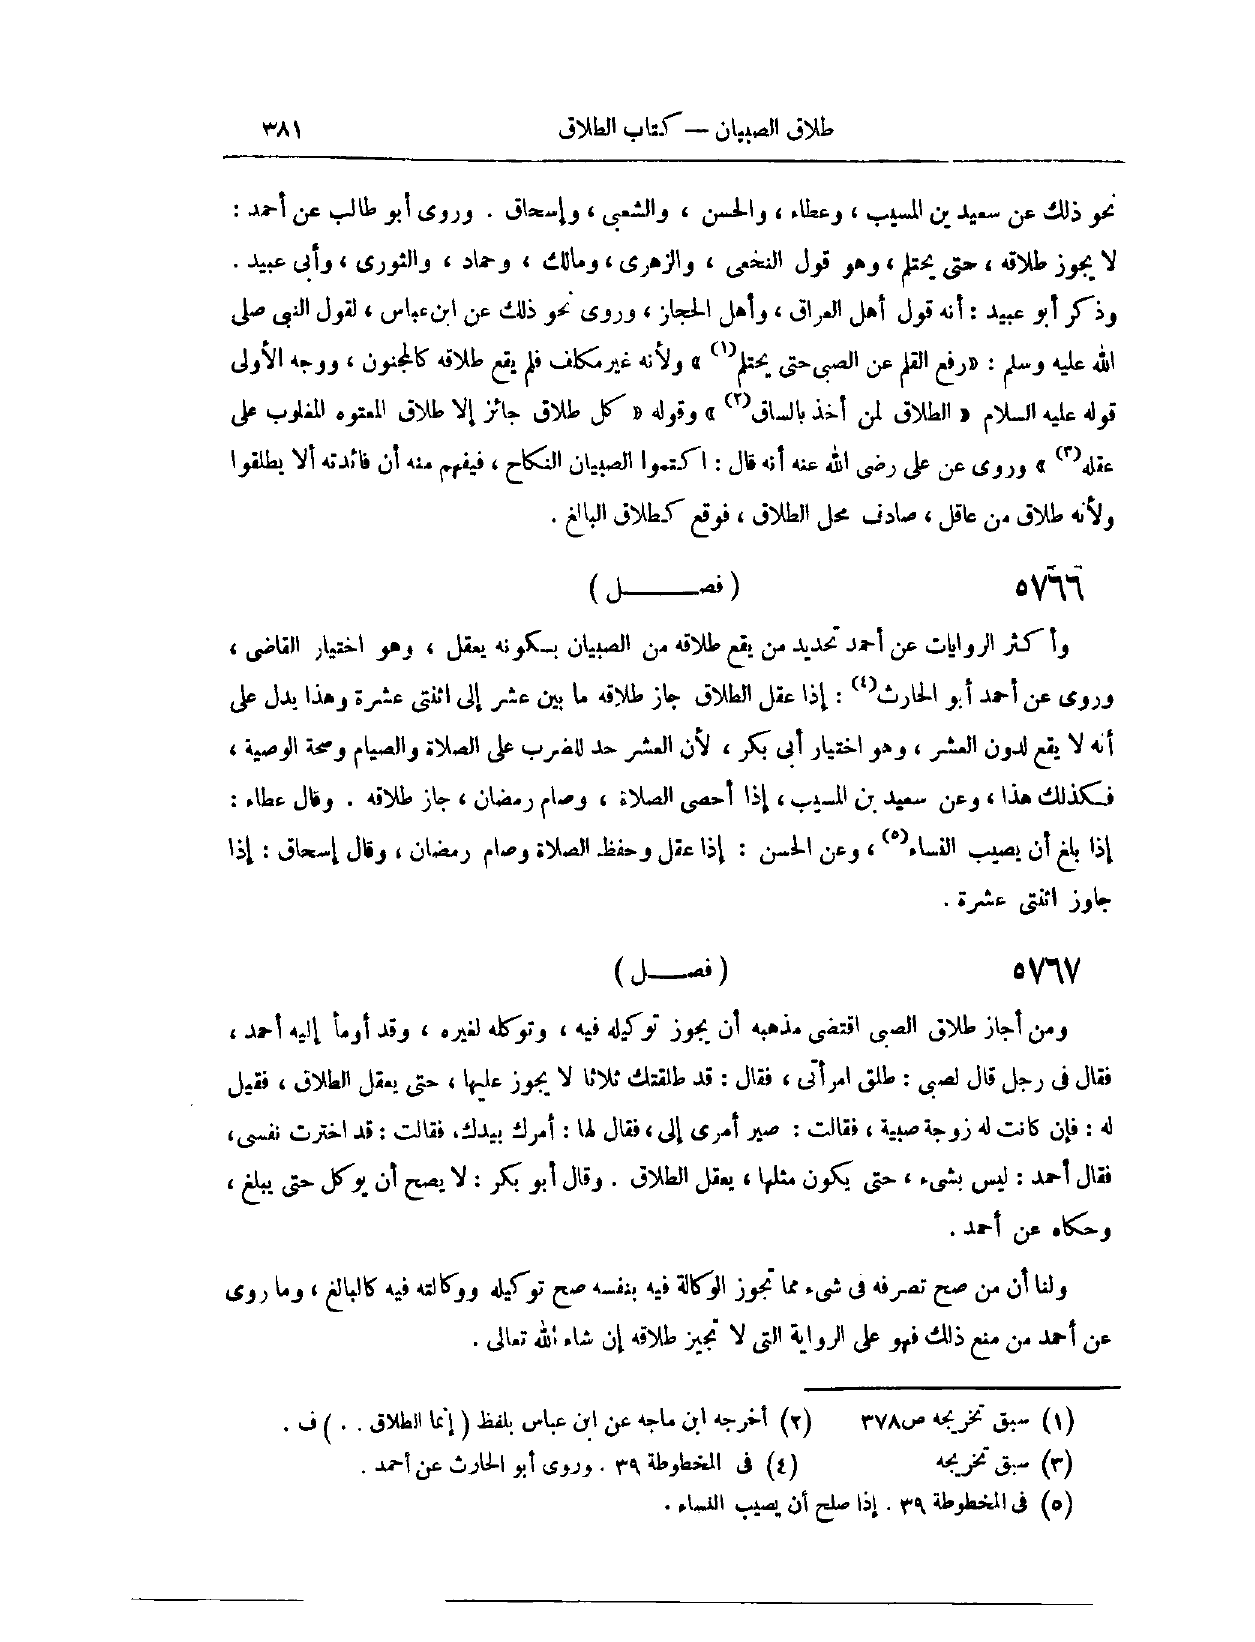 طلاق الصبيان — كتاب الطلاق ٣٨١
نحو ذلك عن سعيد بن المسيب ، وعطاء ، والحسن ، والشعبى ، وإسحاق . وروى أبو طالب عن أحمد :
لا يجوز طلاقه ، حتى يحتلم ، وهو قول النخعى ، والزهرى ، ومالك ، وحماد ، والثورى ، وأبى عبيد .
وذكر أبو عبيد : أنه قول أهل العراق ، وأهل الحجاز ، وروى نحو ذلك عن ابن عباس ، لقول النبى صلى
الله عليه وسلم : «رفع القلم عن الصبى حتى يحتلم(١) » ولأنه غير مكلف فلم يقع طلاقه كالمجنون ، ووجه الأولى
قوله عليه السلام « الطلاق لمن أخذ بالساق(٢) » وقوله « كل طلاق جائز إلا طلاق المعتوه المغلوب على
عقله(٣) » وروى عن على رضى الله عنه أنه قال : اكتموا الصبيان النكاح ، فيفهم منه أن فائدته ألا يطلقوا
ولأنه طلاق من عاقل ، صادف محل الطلاق ، فوقع كطلاق البالغ .
٥٧٦٦ ( فصـــــل )
وأكثر الروايات عن أحمد تحديد من يقع طلاقه من الصبيان بـكونه يعقل ، وهو اختيار القاضى ،
وروى عن أحمد أبو الحارث(٤) : إذا عقل الطلاق جاز طلاقه ما بين عشر إلى اثنتى عشرة وهذا يدل على
أنه لا يقع لدون العشر ، وهو اختيار أبى بكر ، لأن العشر حد للضرب على الصلاة والصيام وصحة الوصية ،
فـكذلك هذا ، وعن سعيد بن المسيب ، إذا أحصى الصلاة ، وصام رمضان ، جاز طلاقه . وقال عطاء :
إذا بلغ أن يصيب النساء(٥) ، وعن الحسن : إذا عقل وحفظ الصلاة وصام رمضان ، وقال إسحاق : إذا
جاوز اثنتى عشرة .
٥٧٦٧ ( فصـــل )
ومن أجاز طلاق الصبى اقتضى مذهبه أن يجوز توكيله فيه ، وتوكله لغيره ، وقد أومأ إليه أحمد ،
فقال فى رجل قال لصبى : طلق امرأتى ، فقال : قد طلقتك ثلاثا لا يجوز عليها ، حتى يعقل الطلاق ، فقيل
له : فإن كانت له زوجة صبية ، فقالت : صير أمرى إلى ، فقال لها : أمرك بيدك. فقالت : قد اخترت نفسى ،
فقال أحمد : ليس بشىء ، حتى يكون مثلها ، يعقل الطلاق . وقال أبو بكر : لا يصح أن يوكل حتى يبلغ ،
وحكاه عن أحمد .
ولنا أن من صح تصرفه فى شىء مما تجوز الوكالة فيه بنفسه صح توكيله ووكالته فيه كالبالغ ، وما روى
عن أحمد من منع ذلك فهو على الرواية التى لا تجيز طلاقه إن شاء الله تعالى .
(١) سبق تخريجه ص٣٧٨ (٢) أخرجه ابن ماجه عن ابن عباس بلفظ ( إنما الطلاق . . ) ف .
(٣) سبق تخريجه (٤) فى المخطوطة ٣٩ . وروى أبو الحارث عن أحمد .
(٥) فى المخطوطة ٣٩ . إذا صلح أن يصيب النساء .